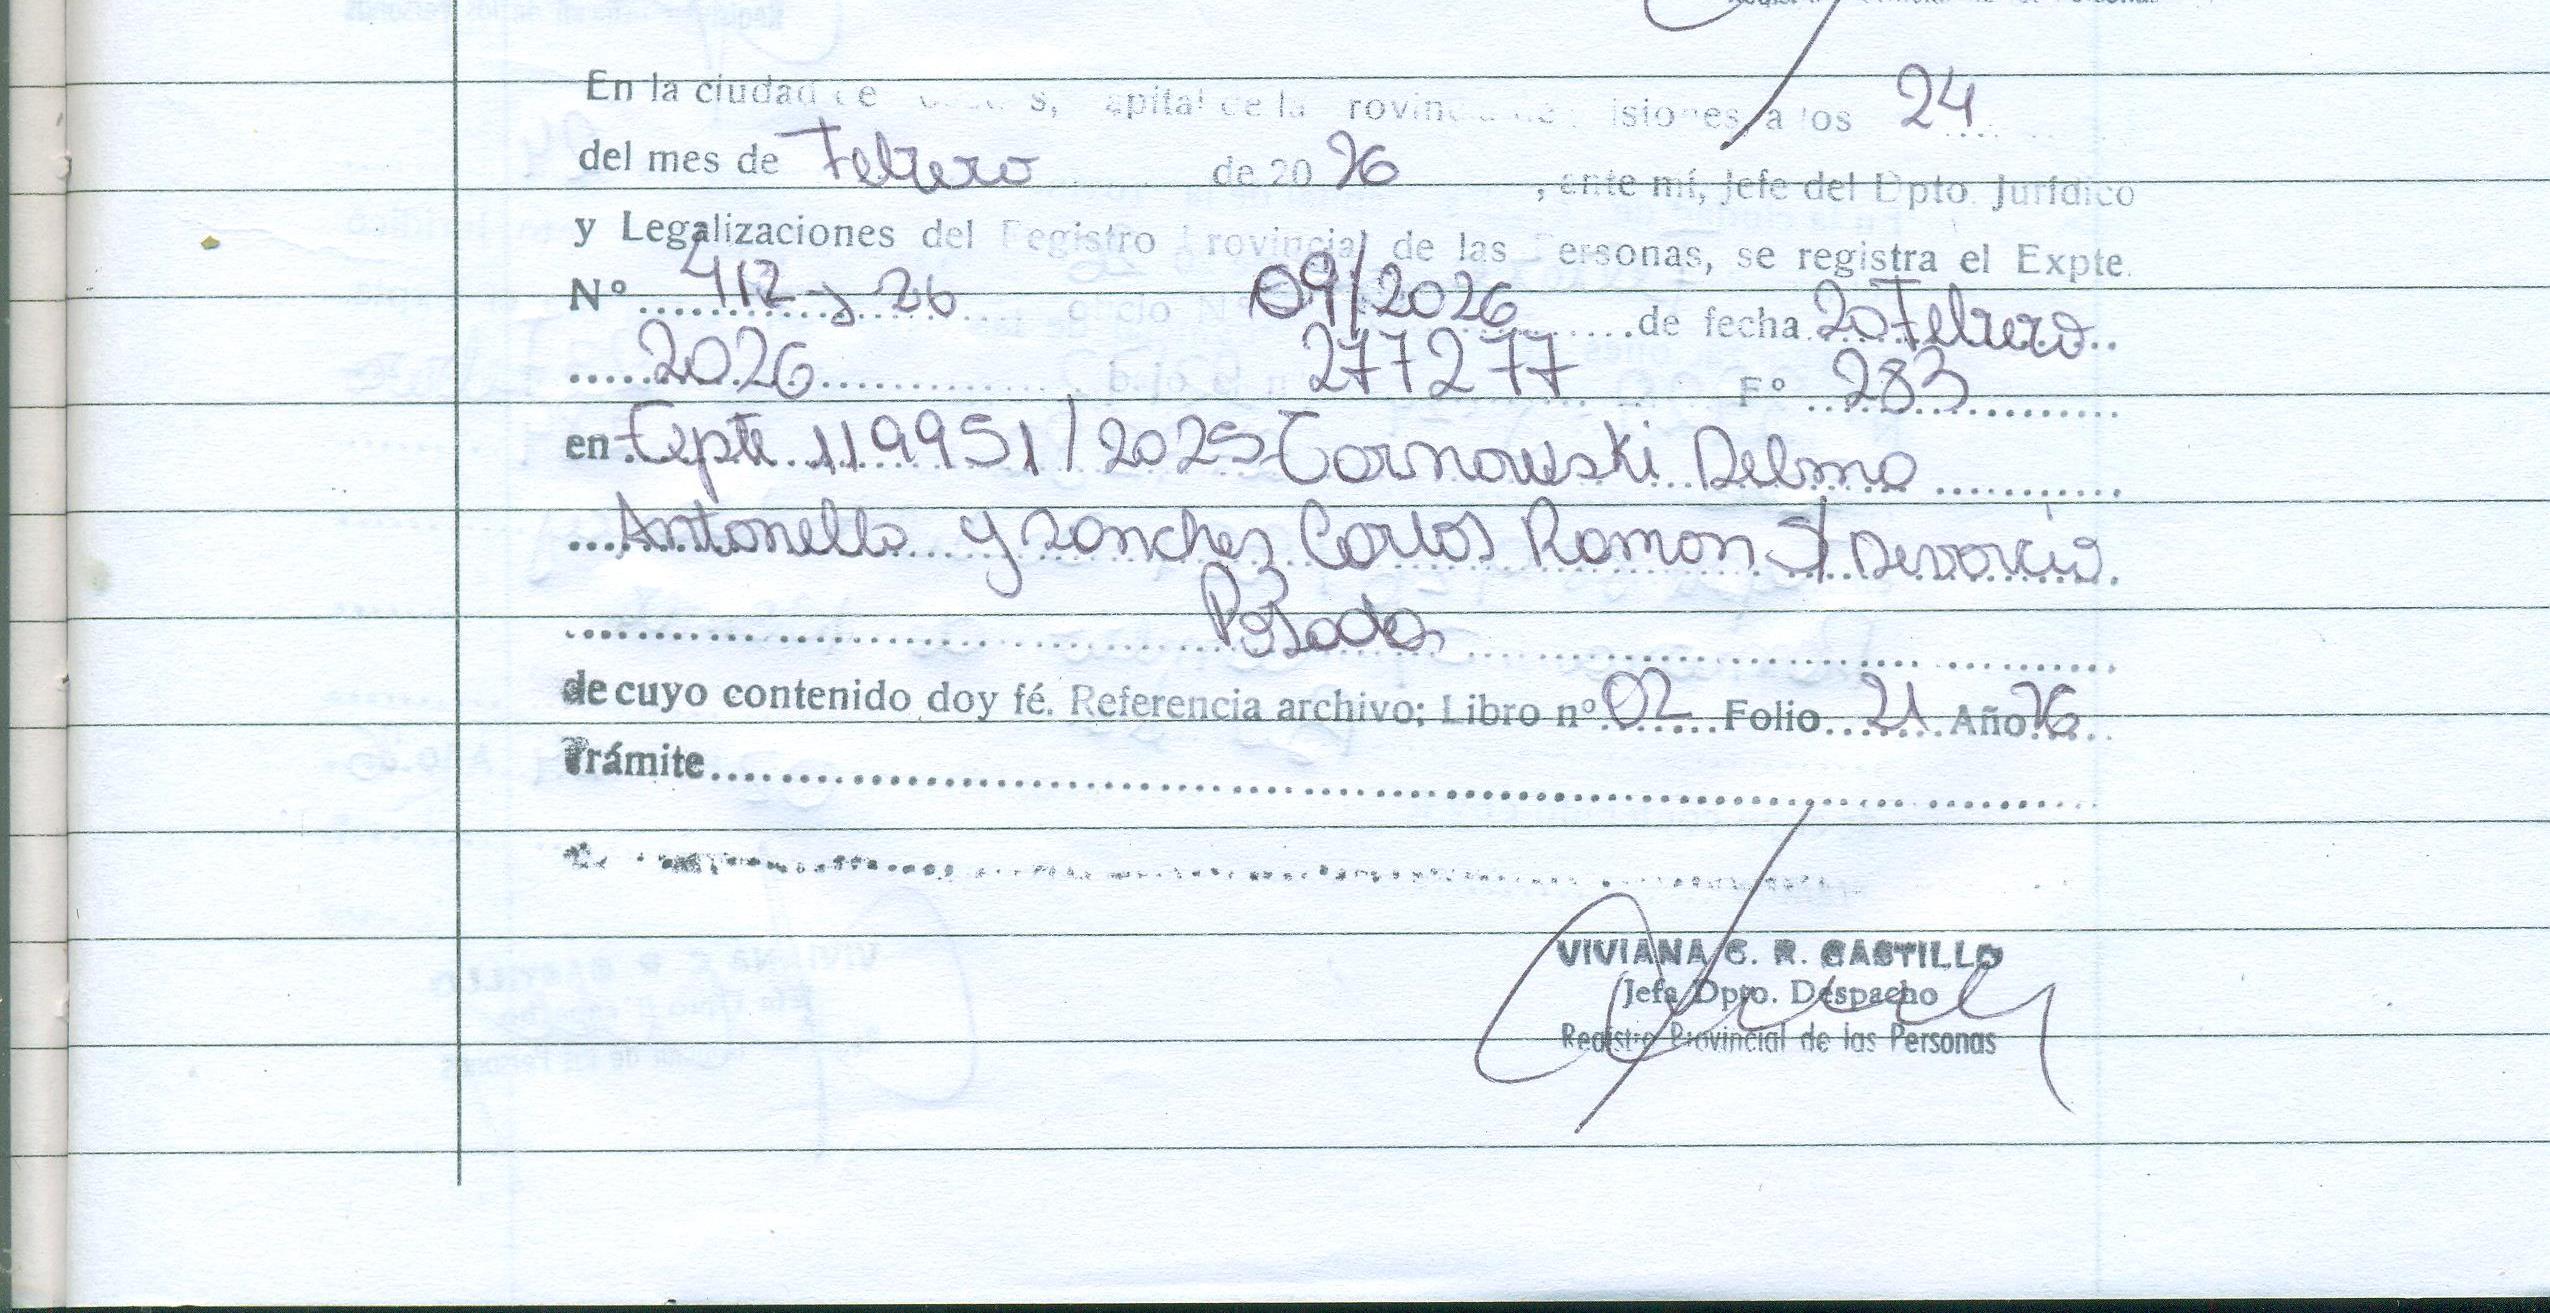 En la ciudad de s, apital de la rovincia de isiones, a los 24
del mes de Febrero de 20 26 , ante mí, Jefe del Dpto. Jurídico
y Legalizaciones del Registro Provincial de las Personas, se registra el Expte.
Nº 412 y 26 oficio Nº 09/2026 de fecha 20 Febrero
2026 bajo el n 277277 Fº 283
en Expte 119951/2025 Tornowski Delma
Antonella y Sanchez Carlos Ramon S/ Divorcio
Posadas
de cuyo contenido doy fé. Referencia archivo; Libro nº 02 Folio 21 Año 26
Trámite
VIVIANA R. CASTILLO
Jefa Dpto. Despacho
Registro Provincial de las Personas